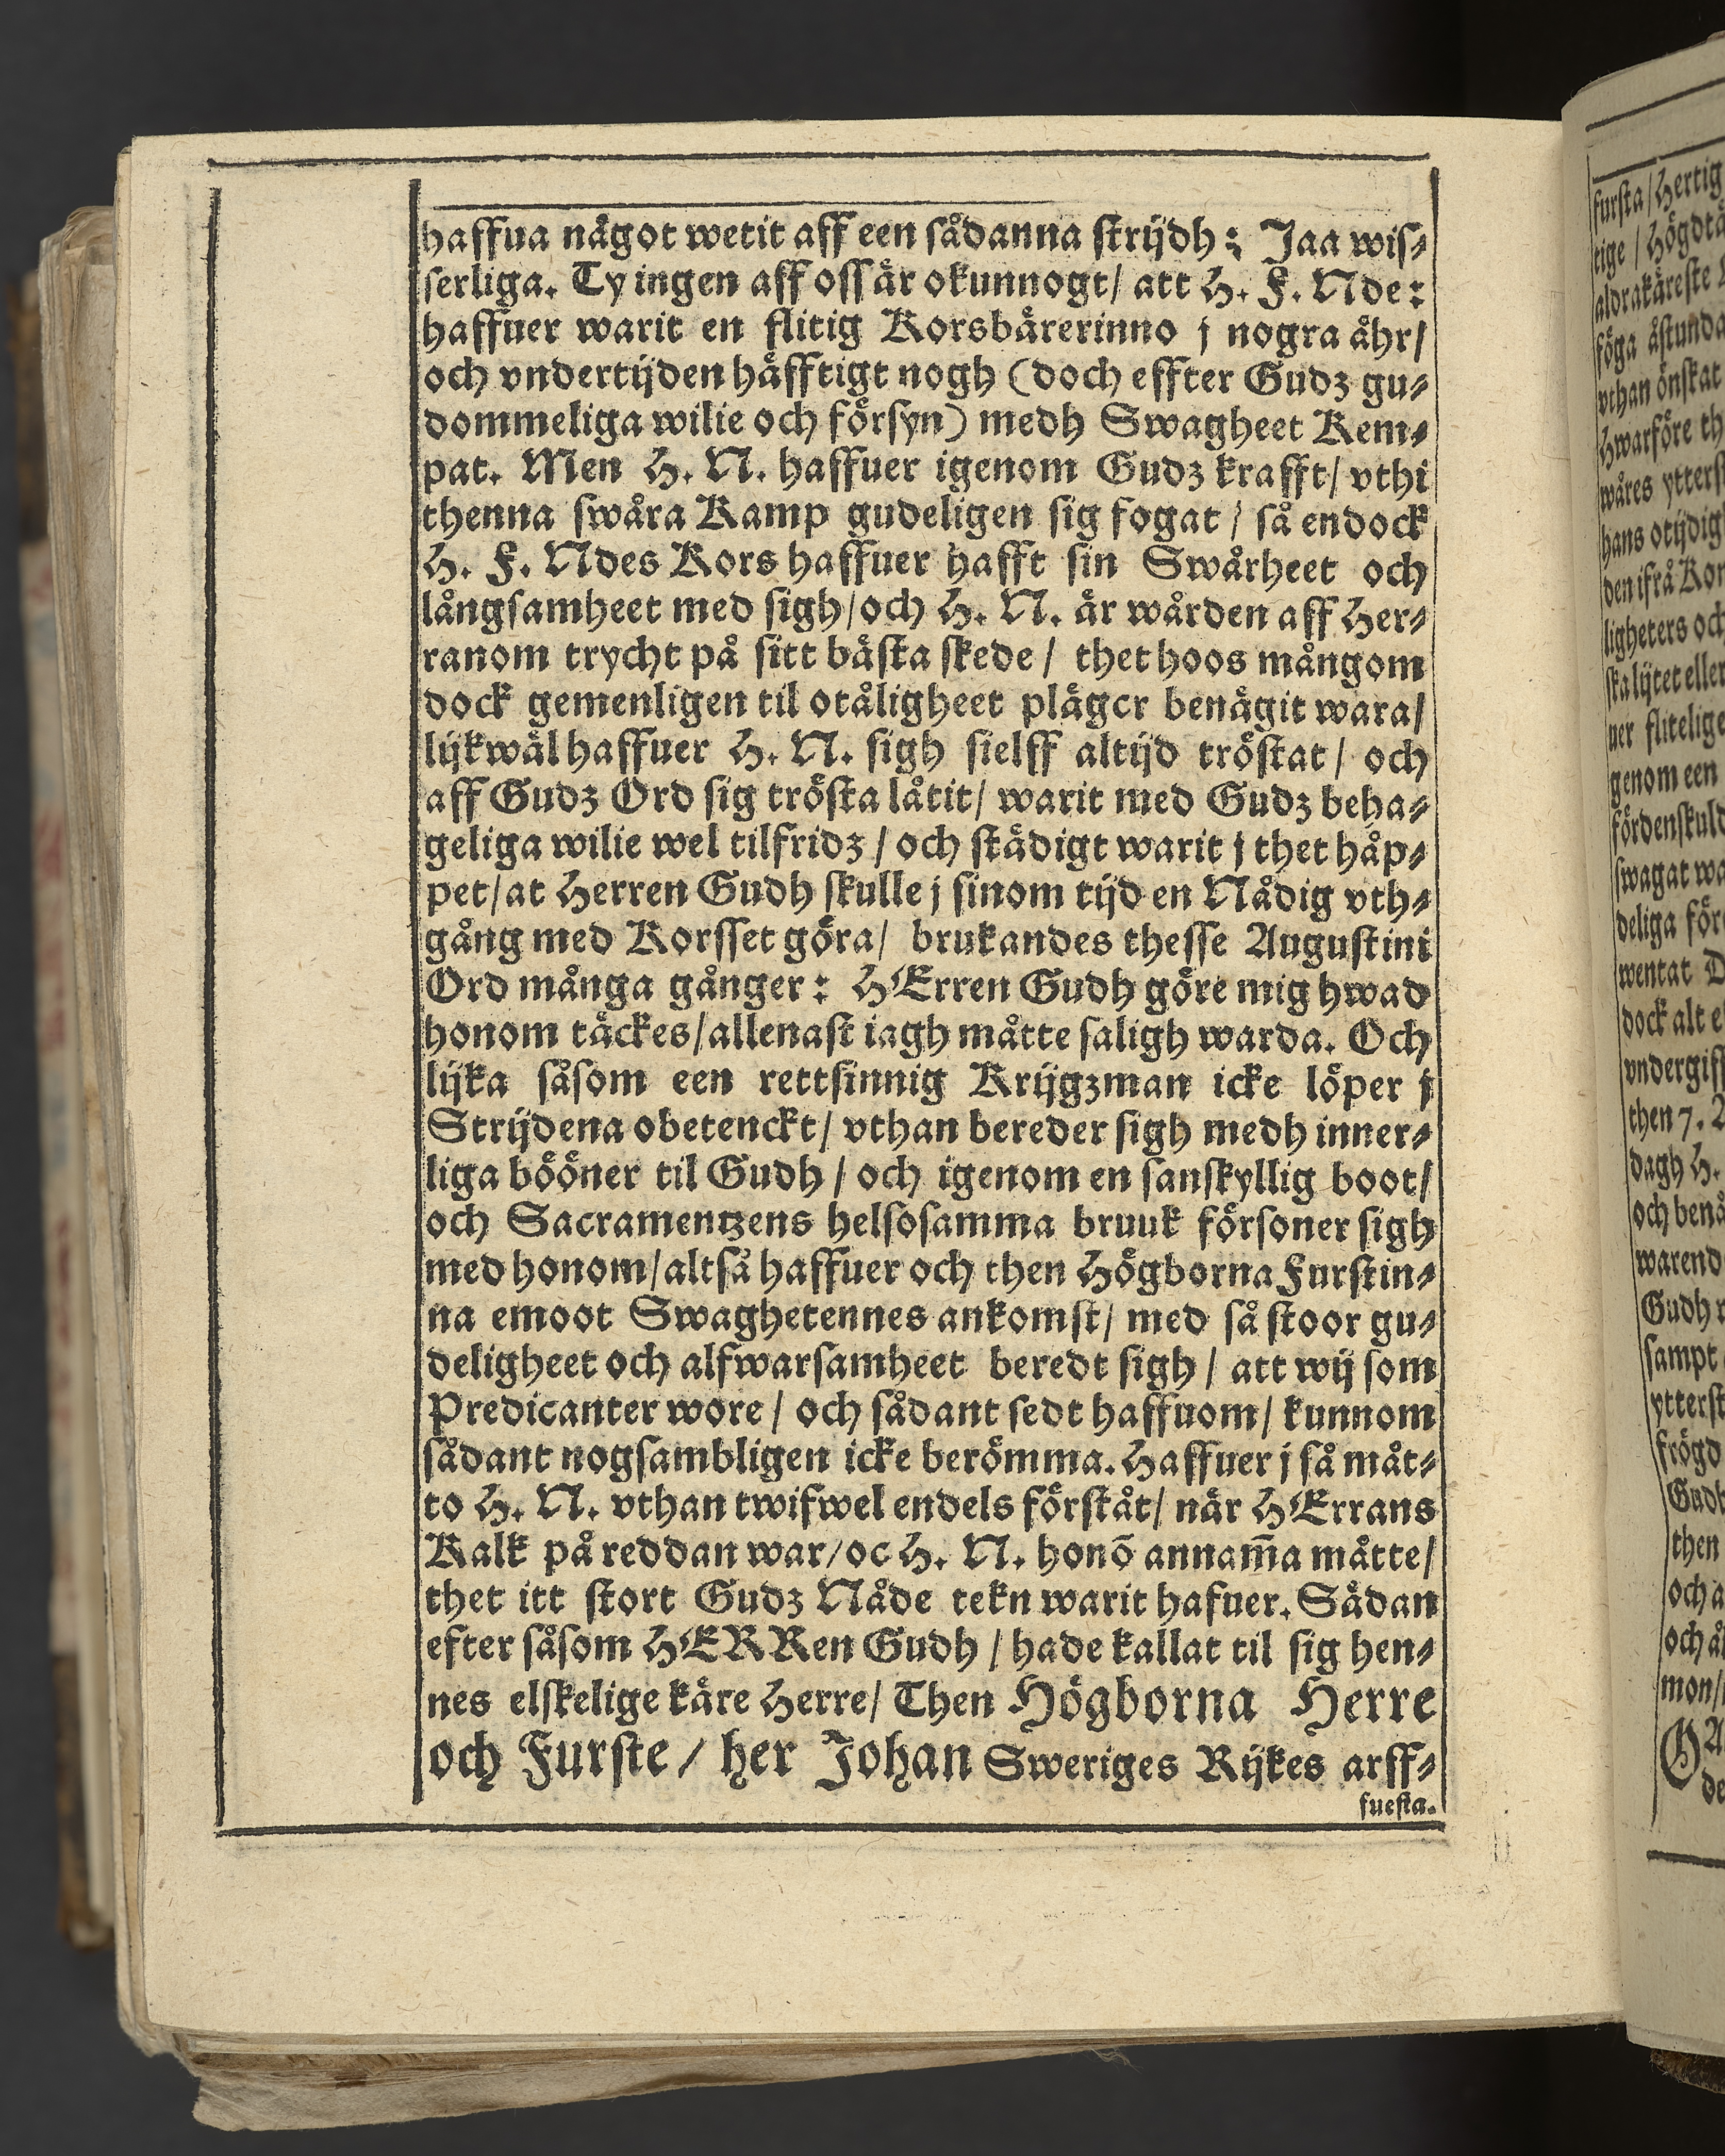 haffua något wetit aff een sådanna strijdh: Jaa wis⸗
serliga. Ty ingen aff oss är okunnogt/ att H. F. Nde:
haffuer warit en flitig Korsbärerinno j nogra åhr/
och vndertijden häfftigt nogh (doch effter Gudz gu⸗
dommeliga wilie och försyn) medh Swagheet Kem⸗
pat. Men H. N. haffuer igenom Gudz krafft/ vthi
thenna swåra Kamp gudeligen sig fogat/ så endock
H. F. Ndes Kors haffuer hafft sin Swårheet och
långsamheet med sigh/och H. N. är wården aff Her⸗
ranom trycht på sitt bästa skede/ thet hoos mångom
dock gemenligen til otåligheet pläger benägit wara/
lijkwäl haffuer H. N. sigh sielff altijd tröstat/ och
aff Gudz Ord sig trösta låtit/ warit med Gudz beha⸗
geliga wilie wel tilfridz/ och städigt warit j thet håp⸗
pet/at Herren Gudh skulle j sinom tijd en Nådig vth⸗
gång med Korsset göra/ brukandes thesse Augustini
Ord många gånger: HErren Gudh göre mig hwad
honom täckes/allenast iagh måtte saligh warda. Och
lijka såsom een rettsinnig Krijgzman icke löper j
Strijdena obetenckt/ vthan bereder sigh medh inner⸗
liga bööner til Gudh/ och igenom en sanskyllig boot/
och Sacramentzens helsosamma bruuk försoner sigh
med honom/altså haffuer och then Högborna Furstin⸗
na emoot Swaghetennes ankomst/ med så stoor gu⸗
deligheet och alfwarsamheet beredt sigh/ att wij som
Predicanter wore/ och sådant sedt haffuom/ kunnom
sådant nogsambligen icke berömma. Haffuer j så måt⸗
to H. N. vthan twifwel endels förståt/ när HErrans
Kalk på reddan war/oc H. N. honō annam̄a måtte/
thet itt stort Gudz Nåde tekn warit hafuer. Sådan
efter såsom HERRen Gudh/ hade kallat til sig hen⸗
nes elskelige käre Herre/ Then Högborna Herre
och Furste/ her Johan Sweriges Rijkes arff⸗
fursta.
fursta/Hertig
tige/Högdtå
aldrakäreste
föga åstunda
vthan önskat
Hwarföre th
wåres ytterst
hans otijdig
den ifrå Kor
ligheters och
ska lijtet eller
uer flitelige
genom een
fördenskuld
swagat wa
deliga för
wentat D
dock alt e
vndergiff
then 7. A
dagh H.
och benå
warend
Gudh
sampt
ytterst
frögd
Gudh
then
och a
och å
mon/
de